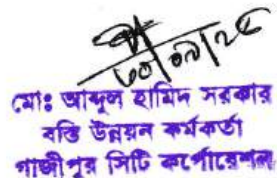 ৩০/০৯/২৪
মোঃ আব্দুল হামিদ সরকার
বস্তি উন্নয়ন কর্মকর্তা
গাজীপুর সিটি কর্পোরেশন